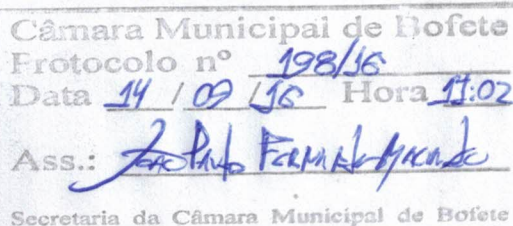 Câmara Municipal de Bofete
Protocolo nº 198/16
Data 14 / 09 / 16 Hora 11:02
Ass.: João Paulo Fernando Machado
Secretaria da Câmara Municipal de Bofete